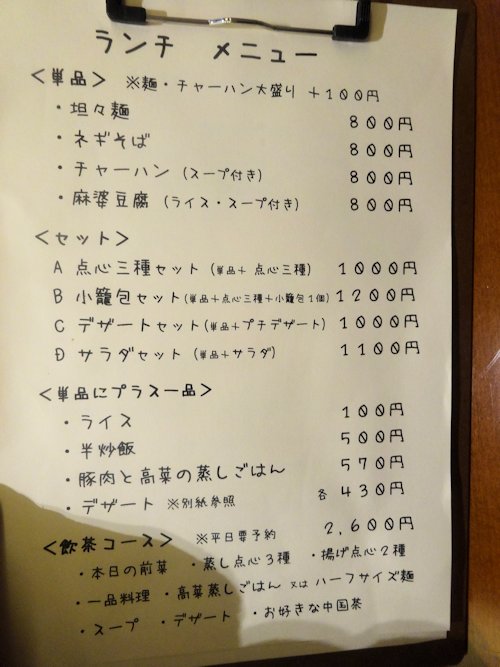 ランチ メニュー
<単品> ※麺・チャーハン大盛り +100円
・坦々麺 800円
・ネギそば 800円
・チャーハン (スープ付き) 800円
・麻婆豆腐 (ライス・スープ付き) 800円
<セット>
A 点心三種セット (単品+点心三種) 1000円
B 小籠包セット(単品+点心三種+小籠包1個) 1200円
C デザートセット(単品+プチデザート) 1000円
D サラダセット (単品+サラダ) 1100円
<単品にプラス一品>
・ライス 100円
・半炒飯 500円
・豚肉と高菜の蒸しごはん 570円
・デザート ※別紙参照 各430円
<飲茶コース> ※平日要予約 2,600円
・本日の前菜 ・蒸し点心3種 ・揚げ点心2種
・一品料理 ・高菜蒸しごはん 又は ハーフサイズ麺
・スープ ・デザート ・お好きな中国茶